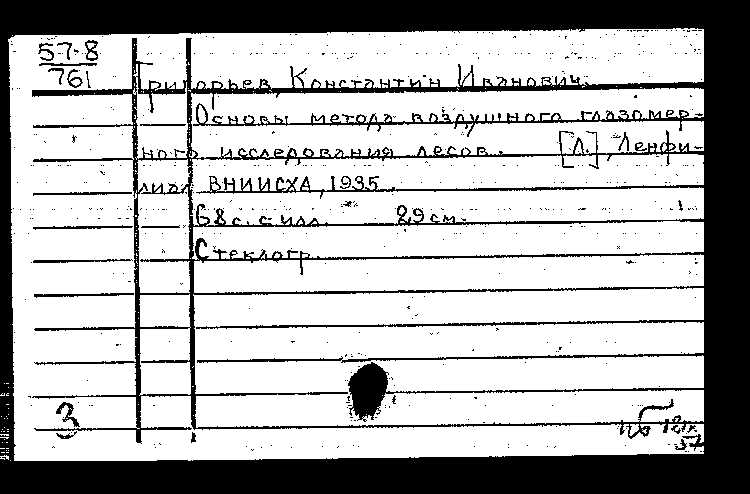 57-8
761
Григорьев, Константин Иванович.
Основы метода воздушного глазомер-
ного исследования лесов. [Л.], Ленфи-
лиал ВНИИСХА, 1935.
68 с. с илл. 29 см.
Стеклогр.
3
57